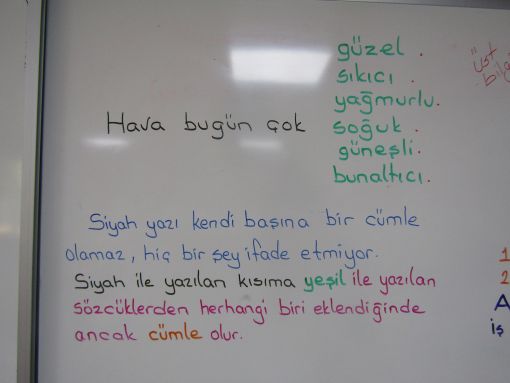 güzel .
sıkıcı .
yağmurlu.
Hava bugün çok soğuk .
güneşli.
bunaltıcı.
Üst
Siyah yazı kendi başına bir cümle
olamaz, hiç bir şey ifade etmiyor.
Siyah ile yazılan kısıma yeşil ile yazılan
sözcüklerden herhangi biri eklendiğinde
ancak cümle olur.
1
2
A
iş